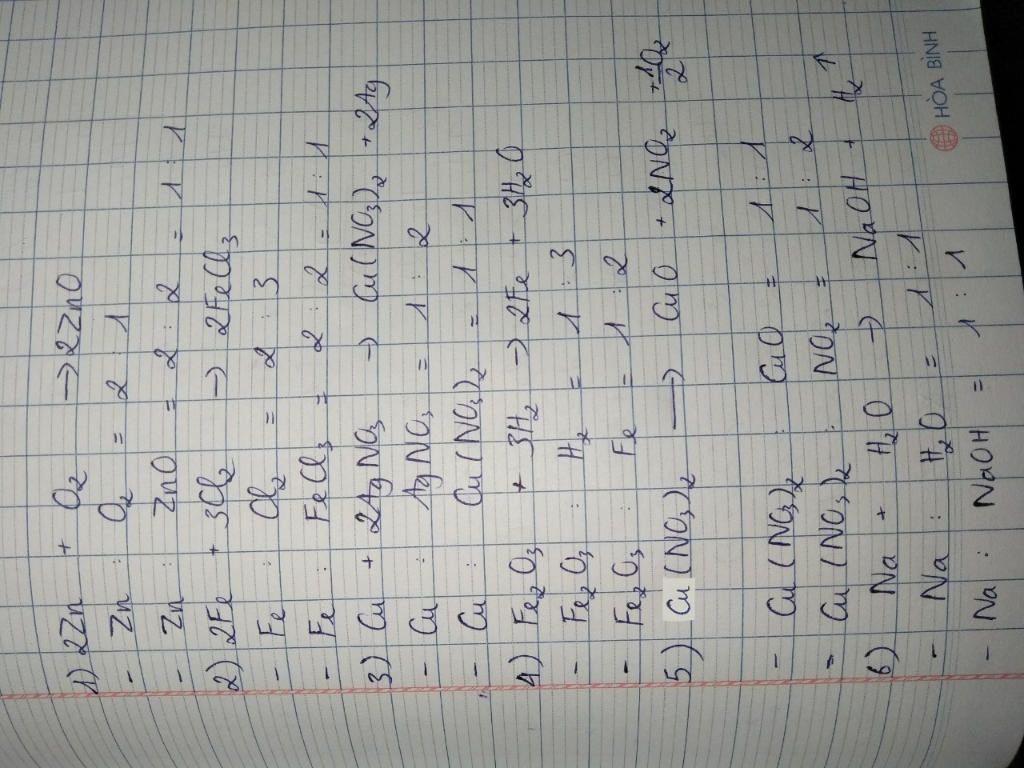 1) 2Zn + O₂ → 2ZnO
- Zn : O₂ = 2 : 1
- Zn : ZnO = 2 : 2 = 1 : 1
2) 2Fe + 3Cl₂ → 2FeCl₃
- Fe : Cl₂ = 2 : 3
- Fe : FeCl₃ = 2 : 2 = 1 : 1
3) Cu + 2AgNO₃ → Cu(NO₃)₂ + 2Ag
- Cu : AgNO₃ = 1 : 2
- Cu : Cu(NO₃)₂ = 1 : 1
4) Fe₂O₃ + 3H₂ → 2Fe + 3H₂O
- Fe₂O₃ : H₂ = 1 : 3
- Fe₂O₃ : Fe = 1 : 2
5) Cu(NO₃)₂ → CuO + 2NO₂ + 1/2 O₂
- Cu(NO₃)₂ : CuO = 1 : 1
= Cu(NO₃)₂ : NO₂ = 1 : 2
6) Na + H₂O → NaOH + H₂ ↑
- Na : H₂O = 1 : 1
- Na : NaOH = 1 : 1
HÒA BÌNH